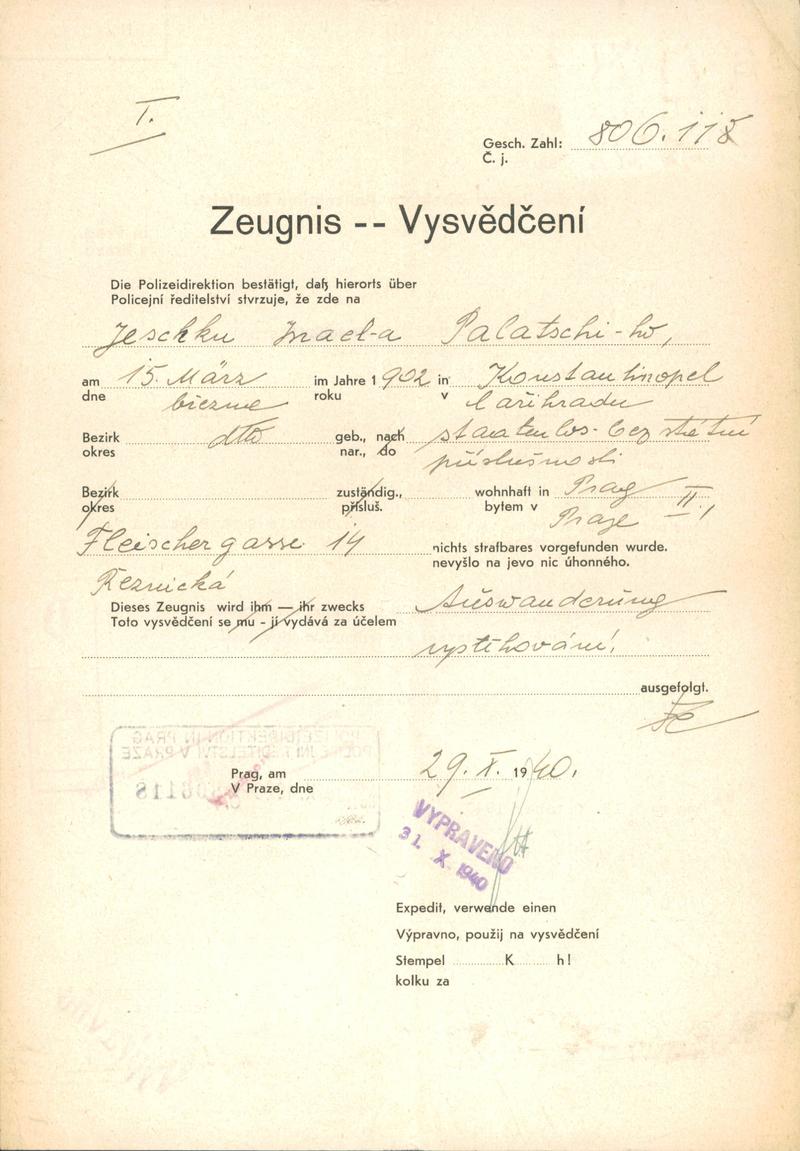 I.
Gesch. Zahl: 806.118
Č. j.
Zeugnis -- Vysvědčení
Die Polizeidirektion bestätigt, daß hierorts über
Policejní ředitelství stvrzuje, že zde na
Jeschku Israel-a Palatschi-ho,
am 15. März im Jahre 1902 in Konstantinopel
dne března roku v Cařihradu
Bezirk dtto geb., nach staatenlos- bez státní
okres nar., do příslušnosti
Bezirk zuständig., wohnhaft in Prag II.,
okres přísluš. bytem v Praze
Fleischergasse 14 nichts strafbares vorgefunden wurde.
nevyšlo na jevo nic úhonného.
Řeznická
Dieses Zeugnis wird ihm — ihr zwecks Auswanderung
Toto vysvědčení se mu - jí vydává za účelem
vystěhování,
ausgefolgt.
POLIZEIDIREKTION IN PRAG
POLICEJNÍ ŘEDITELSTVÍ V PRAZE
806118
Prag, am 29. X. 1940.
V Praze, dne
VYPRAVENO
31. X. 1940
Expedit, verwende einen
Výpravno, použij na vysvědčení
Stempel K h!
kolku za